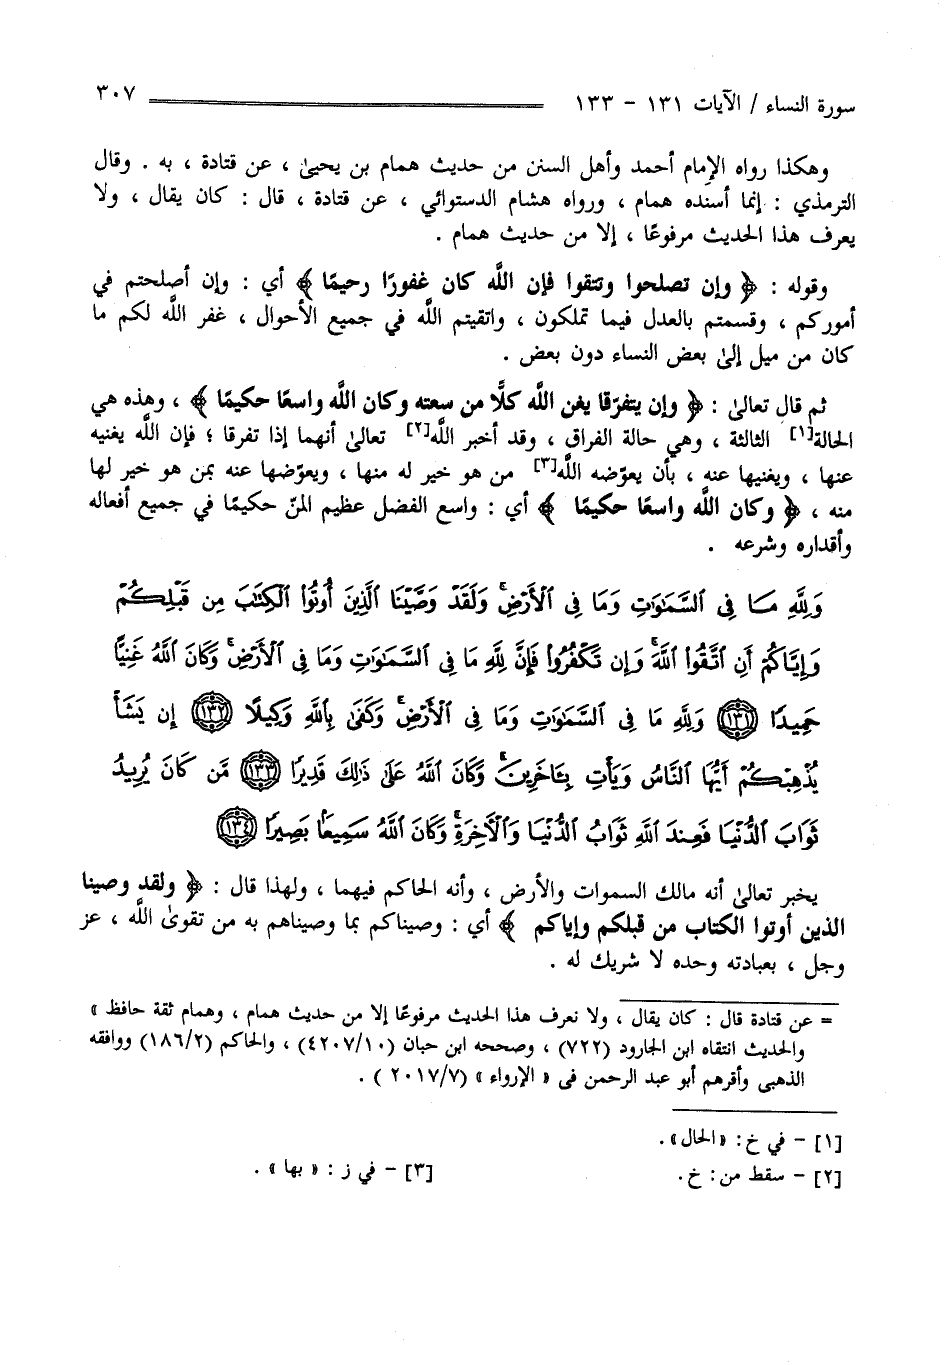 سورة النساء / الآيات ١٣١ - ١٣٣ ٣٠٧
وهكذا رواه الإمام أحمد وأهل السنن من حديث همام بن يحيىٰ ، عن قتادة ، به . وقال
الترمذي : إنما أسنده همام ، ورواه هشام الدستوائي ، عن قتادة ، قال : كان يقال ، ولا
يعرف هذا الحديث مرفوعًا ، إلا من حديث همام .
وقوله : ﴿ وإن تصلحوا وتتقوا فإن اللَّه كان غفورًا رحيمًا ﴾ أي : وإن أصلحتم في
أموركم ، وقسمتم بالعدل فيما تملكون ، واتقيتم اللَّه في جميع الأحوال ، غفر اللَّه لكم ما
كان من ميل إلىٰ بعض النساء دون بعض .
ثم قال تعالىٰ : ﴿ وإن يتفرقا يغن اللَّه كلًّا من سعته وكان اللَّه واسعًا حكيمًا ﴾ ، وهذه هي
الحالة[١] الثالثة ، وهي حالة الفراق ، وقد أخبر اللَّه[٢] تعالىٰ أنهما إذا تفرقا ؛ فإن اللَّه يغنيه
عنها ، ويغنيها عنه ، بأن يعوّضه اللَّه[٣] من هو خير له منها ، ويعوّضها عنه بمن هو خير لها
منه ، ﴿ وكان اللَّه واسعًا حكيمًا ﴾ أي : واسع الفضل عظيم المنّ حكيمًا في جميع أفعاله
وأقداره وشرعه .
وَلِلَّهِ مَا فِى ٱلسَّمَٰوَٰتِ وَمَا فِى ٱلْأَرْضِ ۗ وَلَقَدْ وَصَّيْنَا ٱلَّذِينَ أُوتُوا۟ ٱلْكِتَٰبَ مِن قَبْلِكُمْ
وَإِيَّاكُمْ أَنِ ٱتَّقُوا۟ ٱللَّهَ ۚ وَإِن تَكْفُرُوا۟ فَإِنَّ لِلَّهِ مَا فِى ٱلسَّمَٰوَٰتِ وَمَا فِى ٱلْأَرْضِ ۚ وَكَانَ ٱللَّهُ غَنِيًّا
حَمِيدًا ﴿١٣١﴾ وَلِلَّهِ مَا فِى ٱلسَّمَٰوَٰتِ وَمَا فِى ٱلْأَرْضِ ۚ وَكَفَىٰ بِٱللَّهِ وَكِيلًا ﴿١٣٢﴾ إِن يَشَأْ
يُذْهِبْكُمْ أَيُّهَا ٱلنَّاسُ وَيَأْتِ بِـَٔاخَرِينَ ۚ وَكَانَ ٱللَّهُ عَلَىٰ ذَٰلِكَ قَدِيرًا ﴿١٣٣﴾ مَّن كَانَ يُرِيدُ
ثَوَابَ ٱلدُّنْيَا فَعِندَ ٱللَّهِ ثَوَابُ ٱلدُّنْيَا وَٱلْءَاخِرَةِ ۚ وَكَانَ ٱللَّهُ سَمِيعًۢا بَصِيرًا ﴿١٣٤﴾
يخبر تعالىٰ أنه مالك السموات والأرض ، وأنه الحاكم فيهما ، ولهذا قال : ﴿ ولقد وصينا
الذين أوتوا الكتاب من قبلكم وإياكم ﴾ أي : وصيناكم بما وصيناهم به من تقوىٰ اللَّه ، عز
وجل ، بعبادته وحده لا شريك له .
= عن قتادة قال : كان يقال ، ولا نعرف هذا الحديث مرفوعًا إلا من حديث همام ، وهمام ثقة حافظ »
والحديث انتقاه ابن الجارود (٧٢٢) ، وصححه ابن حبان (٤٢٠٧/١٠) ، والحاكم (١٨٦/٢) ووافقه
الذهبى وأقرهم أبو عبد الرحمن فى « الإرواء » (٢٠١٧/٧ ) .
[١] - في خ : «الحال» .
[٢] - سقط من: خ. [٣] - في ز : « بها» .